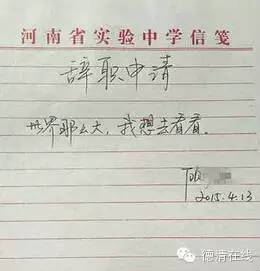 河南省实验中学信笺
辞职申请
世界那么大，我想去看看。
2015.4.13
德清在线